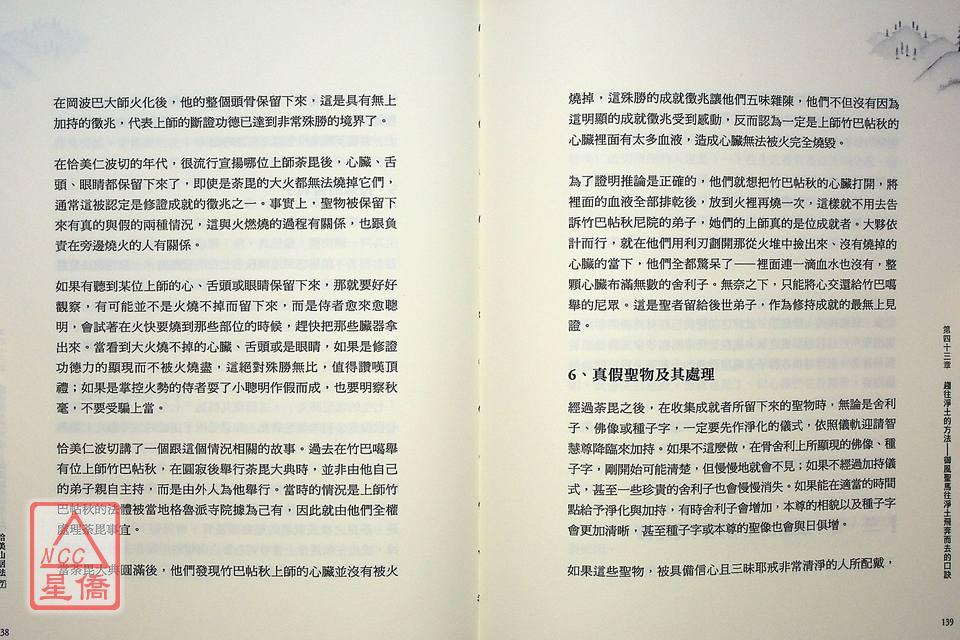 在岡波巴大師火化後，他的整個頭骨保留下來，這是具有無上
加持的徵兆，代表上師的斷證功德已達到非常殊勝的境界了。
在恰美仁波切的年代，很流行宣揚哪位上師荼毘後，心臟、舌
頭、眼睛都保留下來了，即使是荼毘的大火都無法燒掉它們，
通常這被認定是修證成就的徵兆之一。事實上，聖物被保留下
來有真的與假的兩種情況，這與火燃燒的過程有關係，也跟負
責在旁邊燒火的人有關係。
如果有聽到某位上師的心、舌頭或眼睛保留下來，那就要好好
觀察，有可能並不是火燒不掉而留下來，而是侍者愈來愈聰
明，會試著在火快要燒到那些部位的時候，趕快把那些臟器拿
出來。當看到大火燒不掉的心臟、舌頭或是眼睛，如果是修證
功德力的顯現而不被火燒盡，這絕對殊勝無比，值得讚嘆頂
禮；如果是掌控火勢的侍者耍了小聰明作假而成，也要明察秋
毫，不要受騙上當。
恰美仁波切講了一個跟這個情況相關的故事。過去在竹巴噶舉
有位上師竹巴帖秋，在圓寂後舉行荼毘大典時，並非由他自己
的弟子親自主持，而是由外人為他舉行。當時的情況是上師竹
巴帖秋的法體被當地格魯派寺院據為己有，因此就由他們全權
處理荼毘事宜。
當荼毘大典圓滿後，他們發現竹巴帖秋上師的心臟並沒有被火
恰美山居法
38
NCC
星僑
燒掉，這殊勝的成就徵兆讓他們五味雜陳，他們不但沒有因為
這明顯的成就徵兆受到感動，反而認為一定是上師竹巴帖秋的
心臟裡面有太多血液，造成心臟無法被火完全燒毀。
為了證明推論是正確的，他們就想把竹巴帖秋的心臟打開，將
裡面的血液全部排乾後，放到火裡再燒一次，這樣就不用去告
訴竹巴帖秋尼院的弟子，她們的上師真的是位成就者。大夥依
計而行，就在他們用利刃劃開那從火堆中撿出來、沒有燒掉的
心臟的當下，他們全都驚呆了——裡面連一滴血水也沒有，整
顆心臟布滿無數的舍利子。無奈之下，只能將心交還給竹巴噶
舉的尼眾。這是聖者留給後世弟子，作為修持成就的最無上見
證。
6、真假聖物及其處理
經過荼毘之後，在收集成就者所留下來的聖物時，無論是舍利
子、佛像或種子字，一定要先作淨化的儀式，依照儀軌迎請智
慧尊降臨來加持。如果不這麼做，在骨舍利上所顯現的佛像、種
子字，剛開始可能清楚，但慢慢地就會不見；如果不經過加持儀
式，甚至一些珍貴的舍利子也會慢慢消失。如果能在適當的時間
點給予淨化與加持，有時舍利子會增加，本尊的相貌以及種子字
會更加清晰，甚至種子字或本尊的聖像也會與日俱增。
如果這些聖物，被具備信心且三昧耶戒非常清淨的人所配戴，
第四十三章　趨往淨土的方法——御風聖馬往淨土飛奔而去的口訣
139